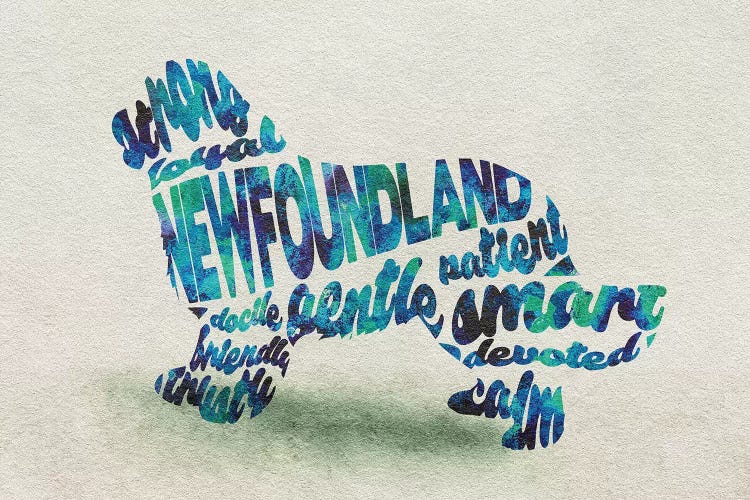 strong
loyal
NEWFOUNDLAND
patient
docile
gentle
smart
friendly
devoted
trusty
calm